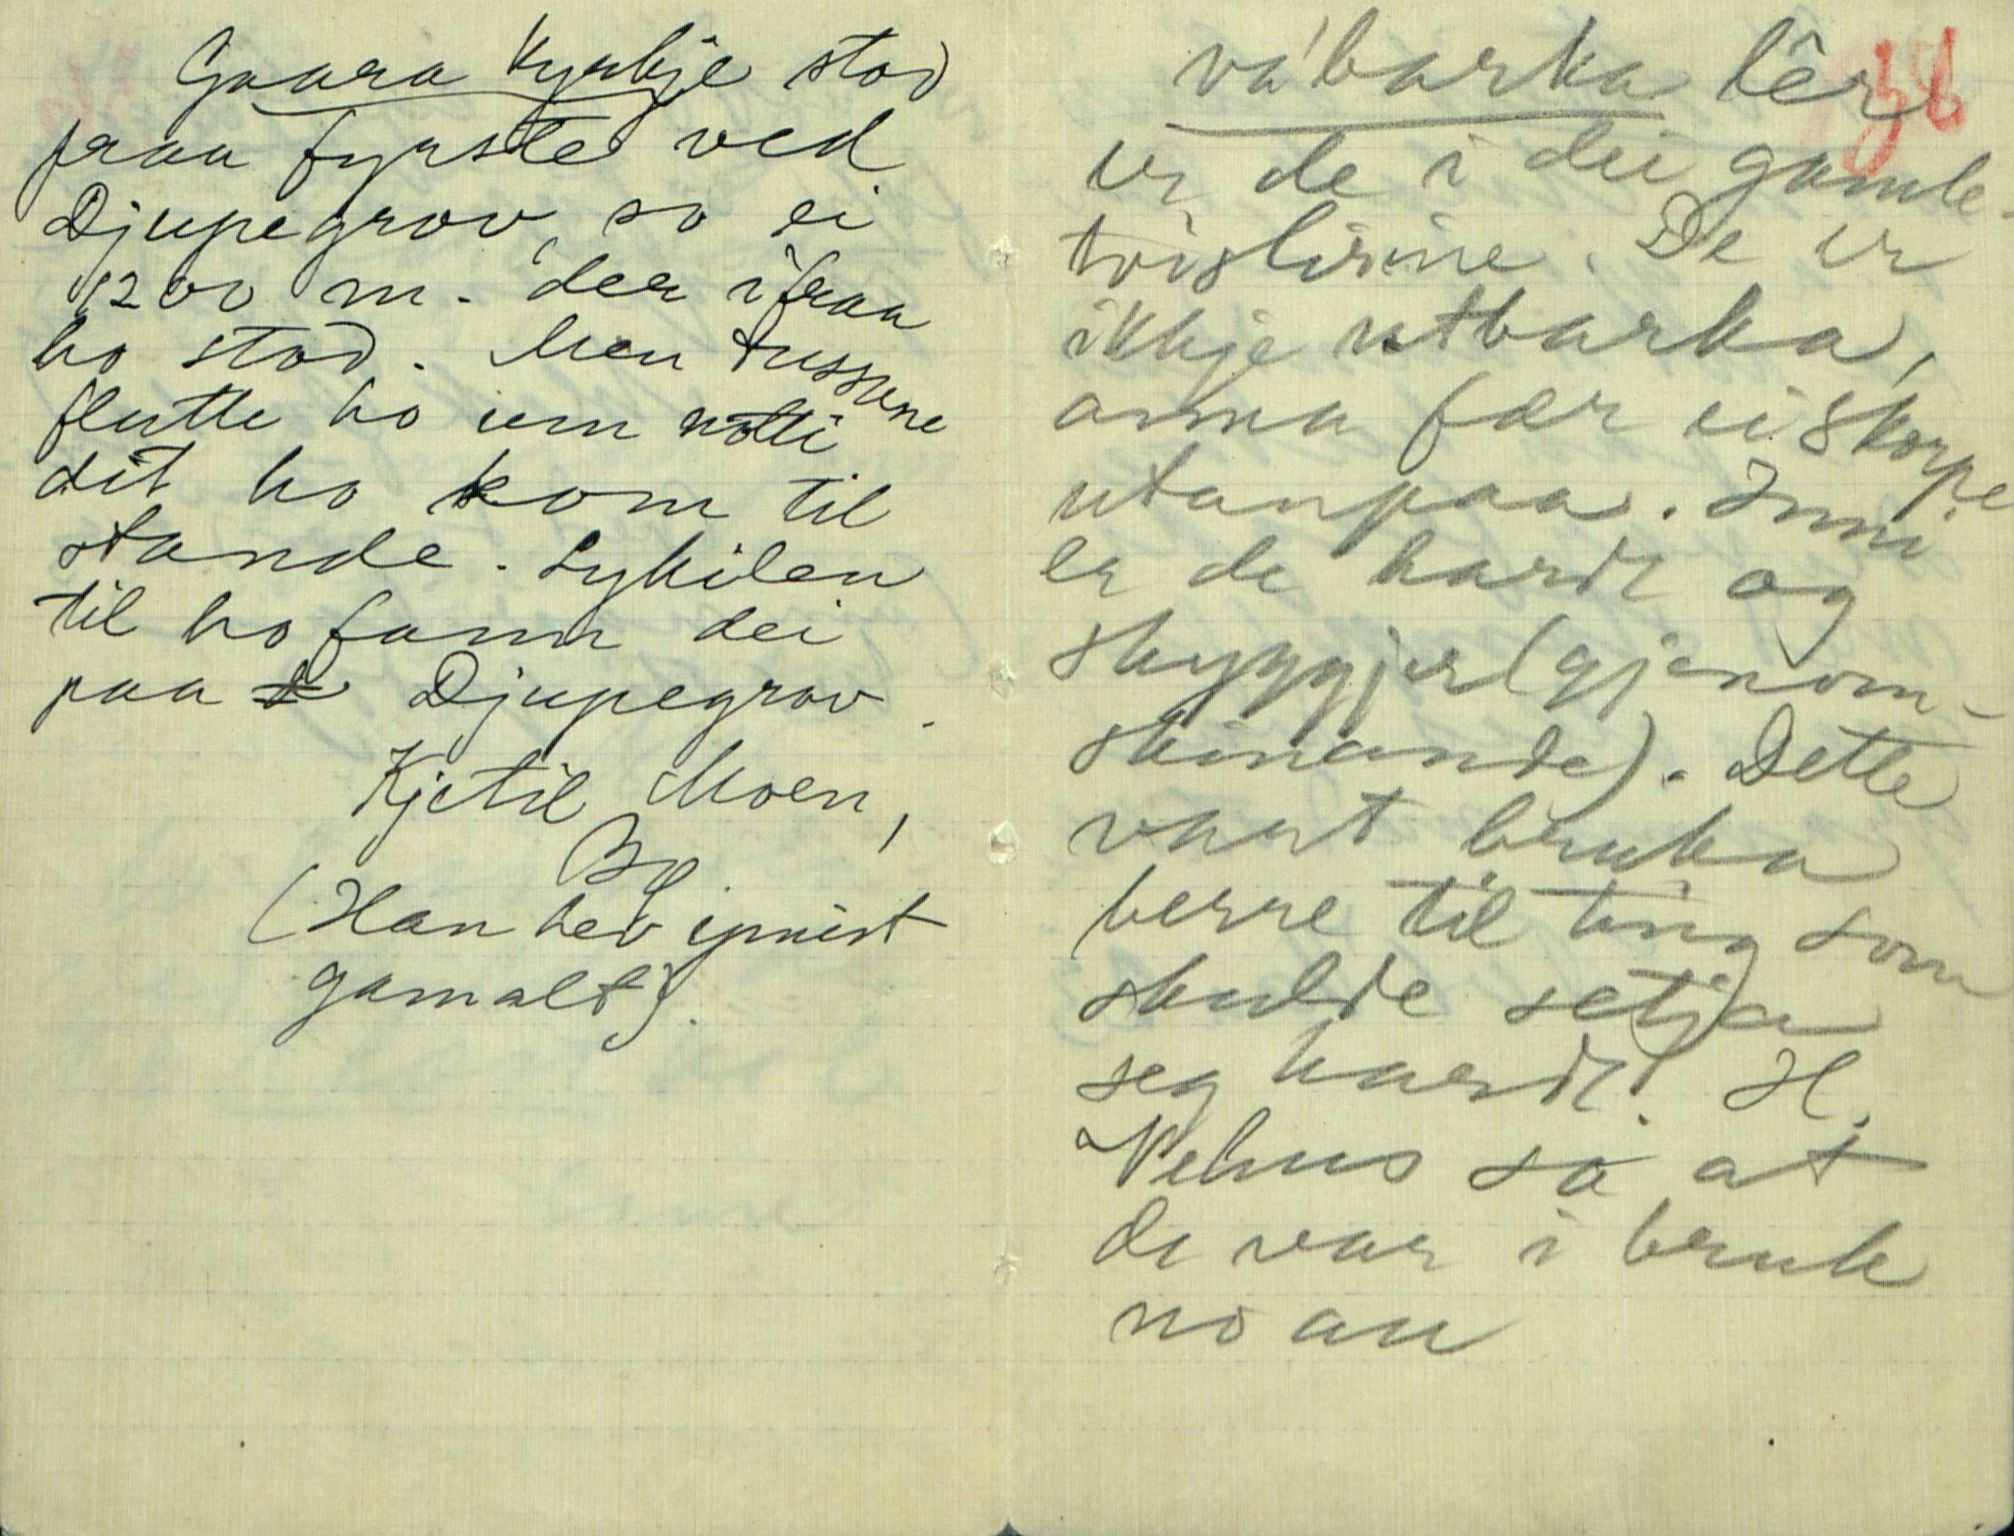 Gaara Kyrkje stod
fraa fyrste ved
Djupegrov, so ei
1200 m. der ifraa
ho stod. Men tussane
flutte ho um notti
dit ho kom til
stande. Lykilen
til ho fann dei
paa Djupegrov.
Kjetil Moen,
Bø
(Han hev spurt
gamalt).
36
vá'barka lêr
er de i dei gamle
tvislirine. De er
ikkje utbarka,
anna fær ei skorpe
utanpaa. Inni
er de hardt og
skyggjer (gjenom-
skinande). Dette
vart bruka
berre til ting som
skulde setja
seg hardt. H.
Vehus sa at
de var i bruk
no au